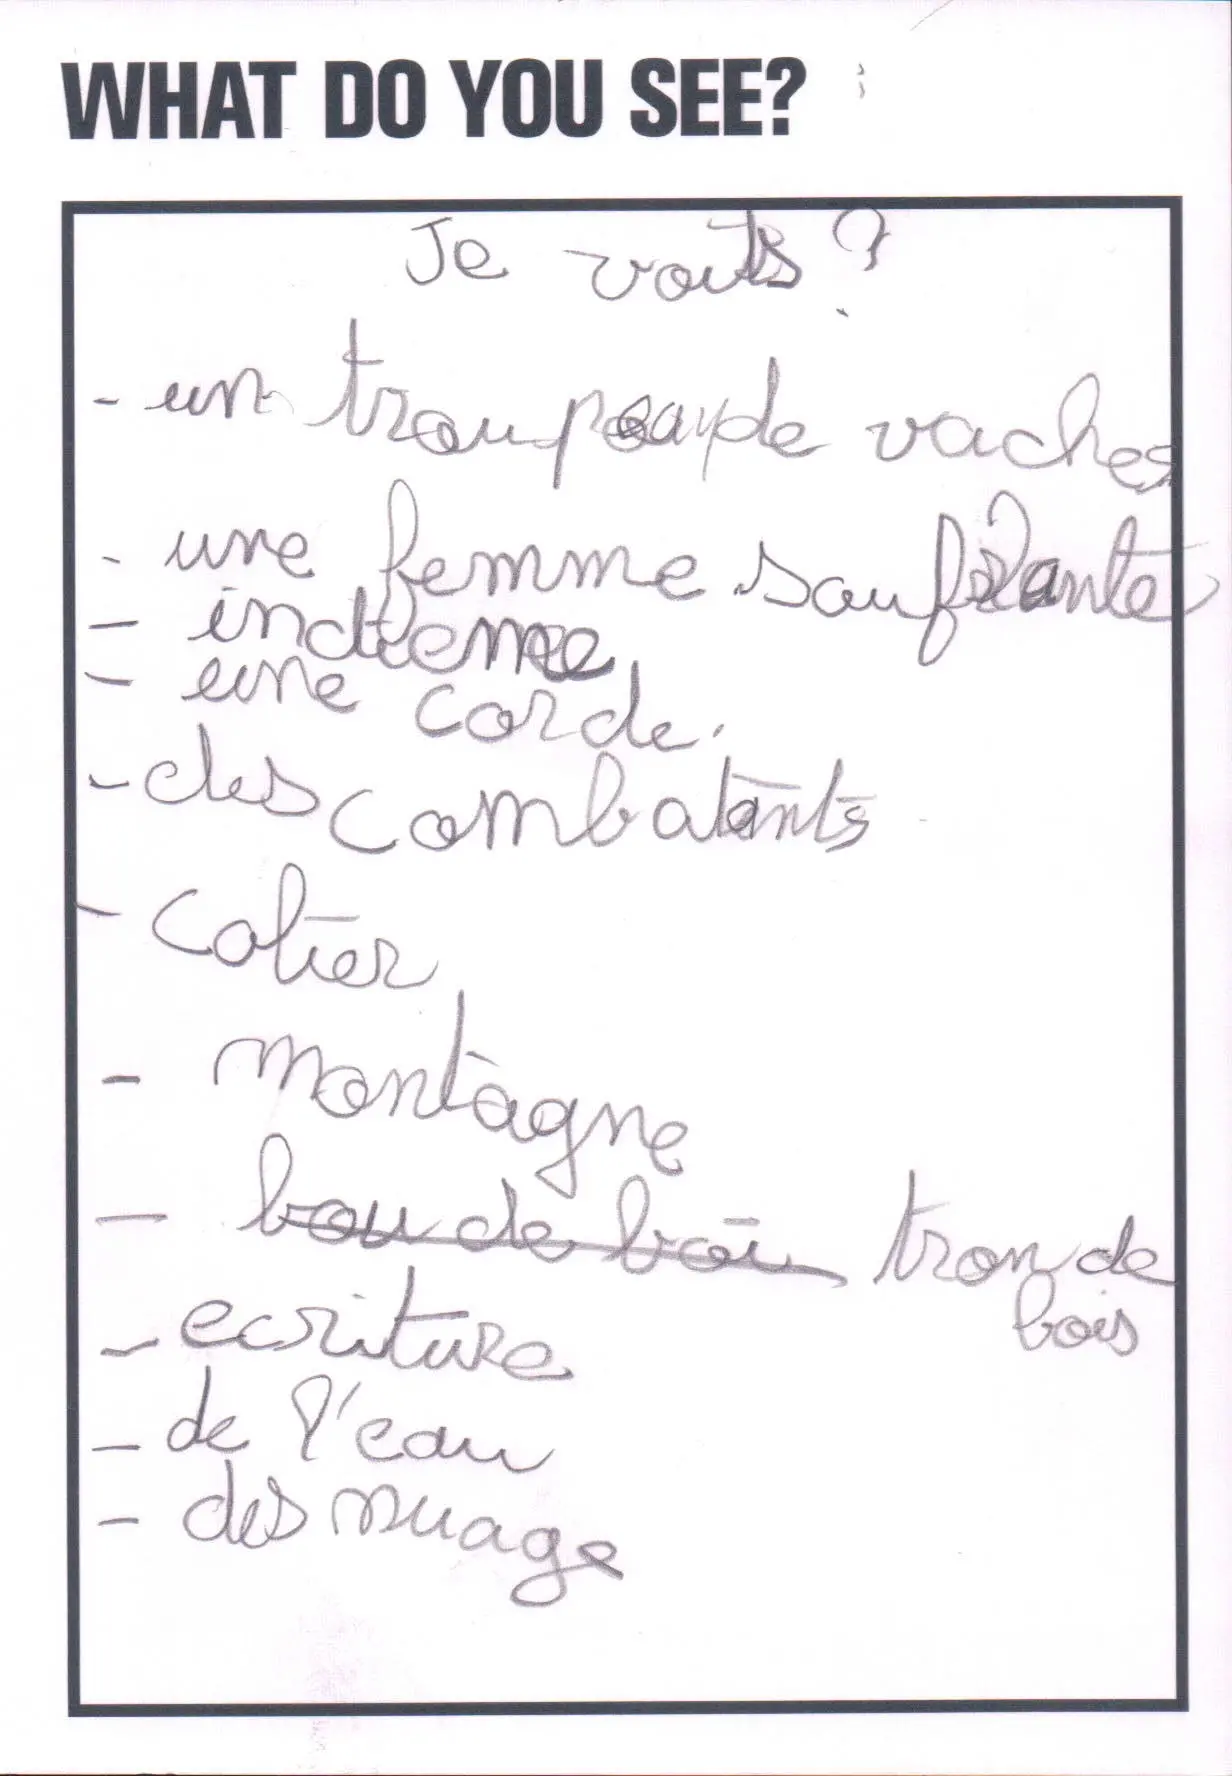 WHAT DO YOU SEE?
Je voits ?
- un troupeau de vaches
- une femme soufrante
- indienne
- une corde.
- des combatants
- colier
- montagne
- bou de boi tron de
bois
- ecriture
- de l'eau
- des nuage